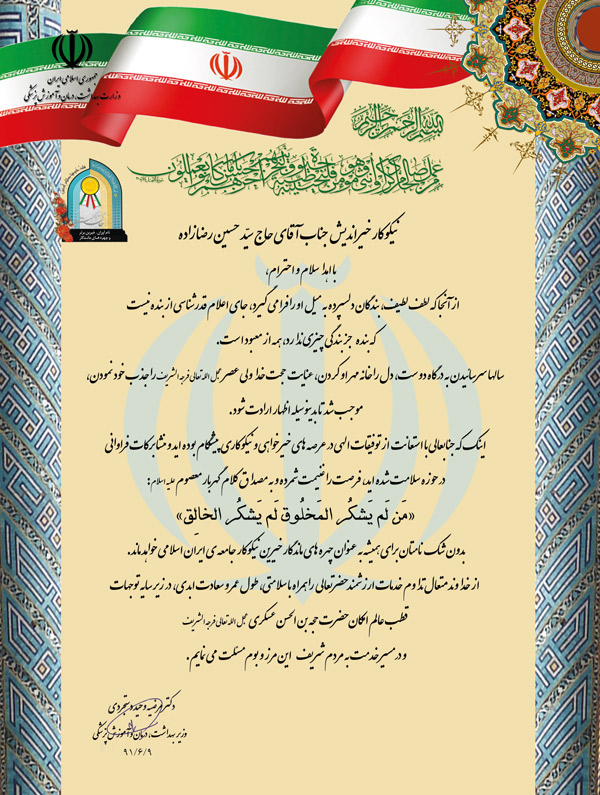 جمهوری اسلامی ایران
وزارت بهداشت، درمان و آموزش پزشکی
بسم الله الرحمن الرحیم
من عمل صالحا من ذکر او انثی و هو مؤمن فلنحیینه حیاة طیبة و لنجزینهم اجرهم باحسن ما کانوا یعملون
نیکوکار خیراندیش جناب آقای حاج سیّد حسین رضازاده
با اهدا سلام و احترام،
از آنجا که لطف لطیف، بندگان دلسپرده به میل او را فرا می گیرد، جای اعلام قدرشناسی از بنده نیست
که بنده جز بندگی چیزی ندارد، همه از معبود است.
سالها سر ساییدن به درگاه دوست، دل را خانه مهر او کردن، عنایت حجت خدا ولی عصر عجل الله تعالی فرجه الشریف را جذب خود نمودن،
موجب شد تا بدینوسیله اظهار ارادت شود.
اینک که جنابعالی با استعانت از توفیقات الهی در عرصه های خیرخواهی و نیکوکاری پیشگام بوده اید و منشا برکات فراوانی
در حوزه سلامت شده اید، فرصت را غنیمت شمرده و به مصداق کلام گهربار معصوم علیه السلام:
«مَن لَم یَشکُر المخلُوق لَم یَشکُر الخالِق»
بدون شک نامتان برای همیشه به عنوان چهره های ماندگار خیرین نیکوکار جامعه ی ایران اسلامی خواهد ماند.
از خداوند متعال تداوم خدمات ارزشمند حضرتعالی را همراه با سلامتی، طول عمر و سعادت ابدی، در زیر سایه توجهات
قطب عالم امکان حضرت حجه بن الحسن عسکری عجل الله تعالی فرجه الشریف
و در مسیر خدمت به مردم شریف این مرز و بوم مسئلت می نمایم.
دکتر مرضیه وحید دستجردی
وزیر بهداشت، درمان و آموزش پزشکی
۹۱/۶/۹